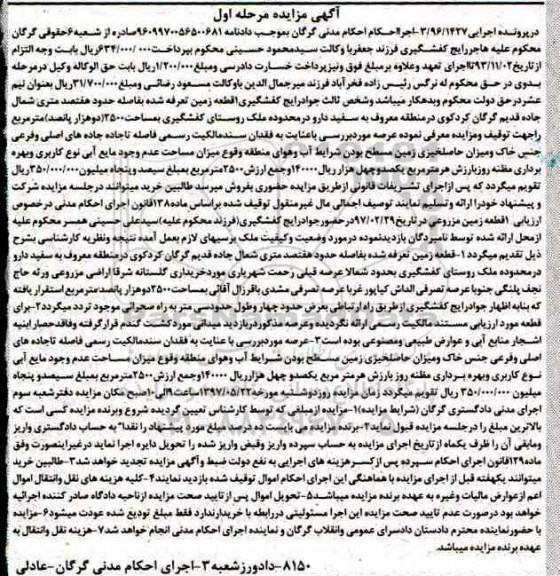 آگهی مزایده مرحله اول
درپرونده اجرایی۳/۹۶/۱۴۲۷-اجرااحکام احکام مدنی گرگان بموجب دادنامه ۹۶۰۹۹۷۰۰۵۶۵۰۰۶۸۱صادره از شعبه۶حقوقی گرگان
محکوم علیه هاجررایج کفشگیری فرزند جعفربا وکالت سیدمحمود حسینی محکوم بپرداخت۶۳۴/۰۰۰/۰۰۰ریال بابت وجه التزام
ازتاریخ۹۳/۱۱/۰۲تااجرای تعهد وعلاوه برمبلغ فوق ونیزپرداخت خسارت دادرسی ومبلغ۱/۲۰۰/۰۰۰ریال بابت حق الوکاله وکیل درمرحله
بدوی در حق محکوم له نرگس رئیس زاده فخرآباد فرزند میرجمال الدین باوکالت مسعود رضائی ومبلغ۳۱/۷۰۰/۰۰۰ریال بعنوان نیم
عشردرحق دولت محکوم وبدهکار میباشد وشخص ثالث جوادرایج کفشگیری۱قطعه زمین تعرفه شده بفاصله حدود هفتصد متری شمال
جاده قدیم گرگان کردکوی درمنطقه معروف به سفید دارو درمحدوده ملک روستای کفشگیری بمساحت۲۵۰۰(دوهزار پانصد)مترمربع
راجهت توقیف ومزایده معرفی نموده عرصه موردبررسی باعنایت به فقدان سندمالکیت رسمی فاصله تاجاده جاده های اصلی وفرعی
جنس خاک ومیزان حاصلخیزی زمین مسطح بودن شرایط آب وهوای منطقه وقوع میزان مساحت عدم وجود مایع آبی نوع کاربری وبهره
برداری مظنه روزباارزش هرمترمربع یکصد وچهل هزار ریال۱۴۰۰۰۰وجمع ارزش۲۵۰۰مترمربع بمبلغ سیصد وپنجاه میلیون۳۵۰/۰۰۰/۰۰۰ریال
تقویم میگردد که پس ازاجرای تشریفات قانونی ازطریق مزایده حضوری بفروش میرسد طالبین خرید میتوانند درجلسه مزایده شرکت
و پیشنهاد خودرا ارائه وتسلیم نمایند توصیف اجمالی مال غیرمنقول توقیف شده براساس ماده۱۳۸قانون اجرای احکام مدنی درخصوص
ارزیابی ۱قطعه زمین مزروعی درتاریخ۹۷/۰۲/۲۹درحضورجوادرایج کفشگیری(فرزند محکوم علیه)سیدعلی حسینی همسر محکوم علیه
ازمحل ارائه شده توسط نامبردگان بازدیدنموده درمورد وضعیت وکیفیت ملک برسیهای لازم بعمل آمده نتیجه ونظریه کارشناسی بشرح
ذیل تقدیم میگردد ۱-قطعه زمین تعرفه شده بفاصله حدود هفتصد متری شمال جاده قدیم گرگان کردکوی درمنطقه معروف به سفید دارو
درمحدوده ملک روستای کفشگیری بحدود شمالا عرصه قبلی رحمت شهریاری موردخریداری گلستانه شرقا اراضی مزروعی ورثه حاج
نجف پلنگی جنوبا عرصه تصرفی الداش کیاپور غربا عرصه تصرفی مشدی باقرزال آقائی بمساحت۲۵۰۰دوهزار پانصدمترمربع استقرار یافته
که بنابه اظهار جوادرایج کفشگیری ازطریق راه ارتباطی بعرض حدود چهار وطول حدودسی متر به راه صحرائی موجود تردد میگردد۲-برای
قطعه مورد ارزیابی مستند مالکیت رسمی ارائه نگردیده وعرصه مذکوردربازدید میدانی موردکشت گندم قرارگرفته وفاقدحصار ابنیه
اشجار منابع آبی و عوارض طبیعی ومصنوعی بوده است۳-عرصه موردبررسی با عنایت به فقدان سندمالکیت رسمی فاصله تاجاده های
اصلی وفرعی جنس خاک ومیزان حاصلخیزی زمین مسطح بودن شرایط آب وهوای منطقه وقوع میزان مساحت عدم وجود مایع آبی
نوع کاربری وبهره برداری مظنه روز باارزش هرمتر مربع یکصدو چهل هزارریال ۱۴۰۰۰۰وجمع ارزش۲۵۰۰مترمربع بمبلغ سیصدو پنجاه
میلیون ۳۵۰/۰۰۰/۰۰۰ ریال تقویم میگردد زمان مزایده روزدوشنبه مورخه۱۳۹۷/۰۵/۲۲ساعت۹الی۱۰صبح مکان مزایده دفترشعبه سوم
اجرای مدنی دادگستری گرگان (شرایط مزایده)۱-مزایده ازمبلغی که توسط کارشناس تعیین گردیده شروع وبرنده مزایده کسی است که
بالاترین مبلغ را درجلسه مزایده قبول نماید۲-برنده مزایده می بایست ده درصد مبلغ مورد پیشنهاد را نقدا" به حساب دادگستری واریز
ومابقی آن را ظرف یکماه ازتاریخ اجرای مزایده به حساب سپرده واریز وقبض واریز شده را تحویل دایره اجرا نماید درغیراینصورت وفق
ماده۱۲۹قانون اجرای احکام سپرده پس ازکسرهزینه های اجرایی به نفع دولت ضبط وآگهی مزایده تجدید خواهد شد۳-طالبین خرید
میتوانند یکهفته قبل از اجرای مزایده با هماهنگی این اجرای احکام اموال توقیف شده بازدید نمایند۴-کلیه هزینه های نقل وانتقال اموال
اعم ازعوارض مالیات وغیره به عهده برنده مزایده میباشد۵-تحویل اموال پس ازتایید صحت مزایده ازناحیه دادگاه صادر کننده اجرائیه
خواهد بود درصورت عدم تایید صحت مزایده این اجرا مسئولیتی دررابطه با خریدارندارد فقط مبلغ تودیع شده عودت میشود۶-مزایده
با حضورنماینده محترم دادستان دادسرای عمومی وانقلاب گرگان و نماینده اجرای احکام مدنی انجام خواهد شد۷-هزینه نقل وانتقال به
عهده برنده مزایده میباشد.
۸۱۵۰-دادورزشعبه۳-اجرای احکام مدنی گرگان-عادلی